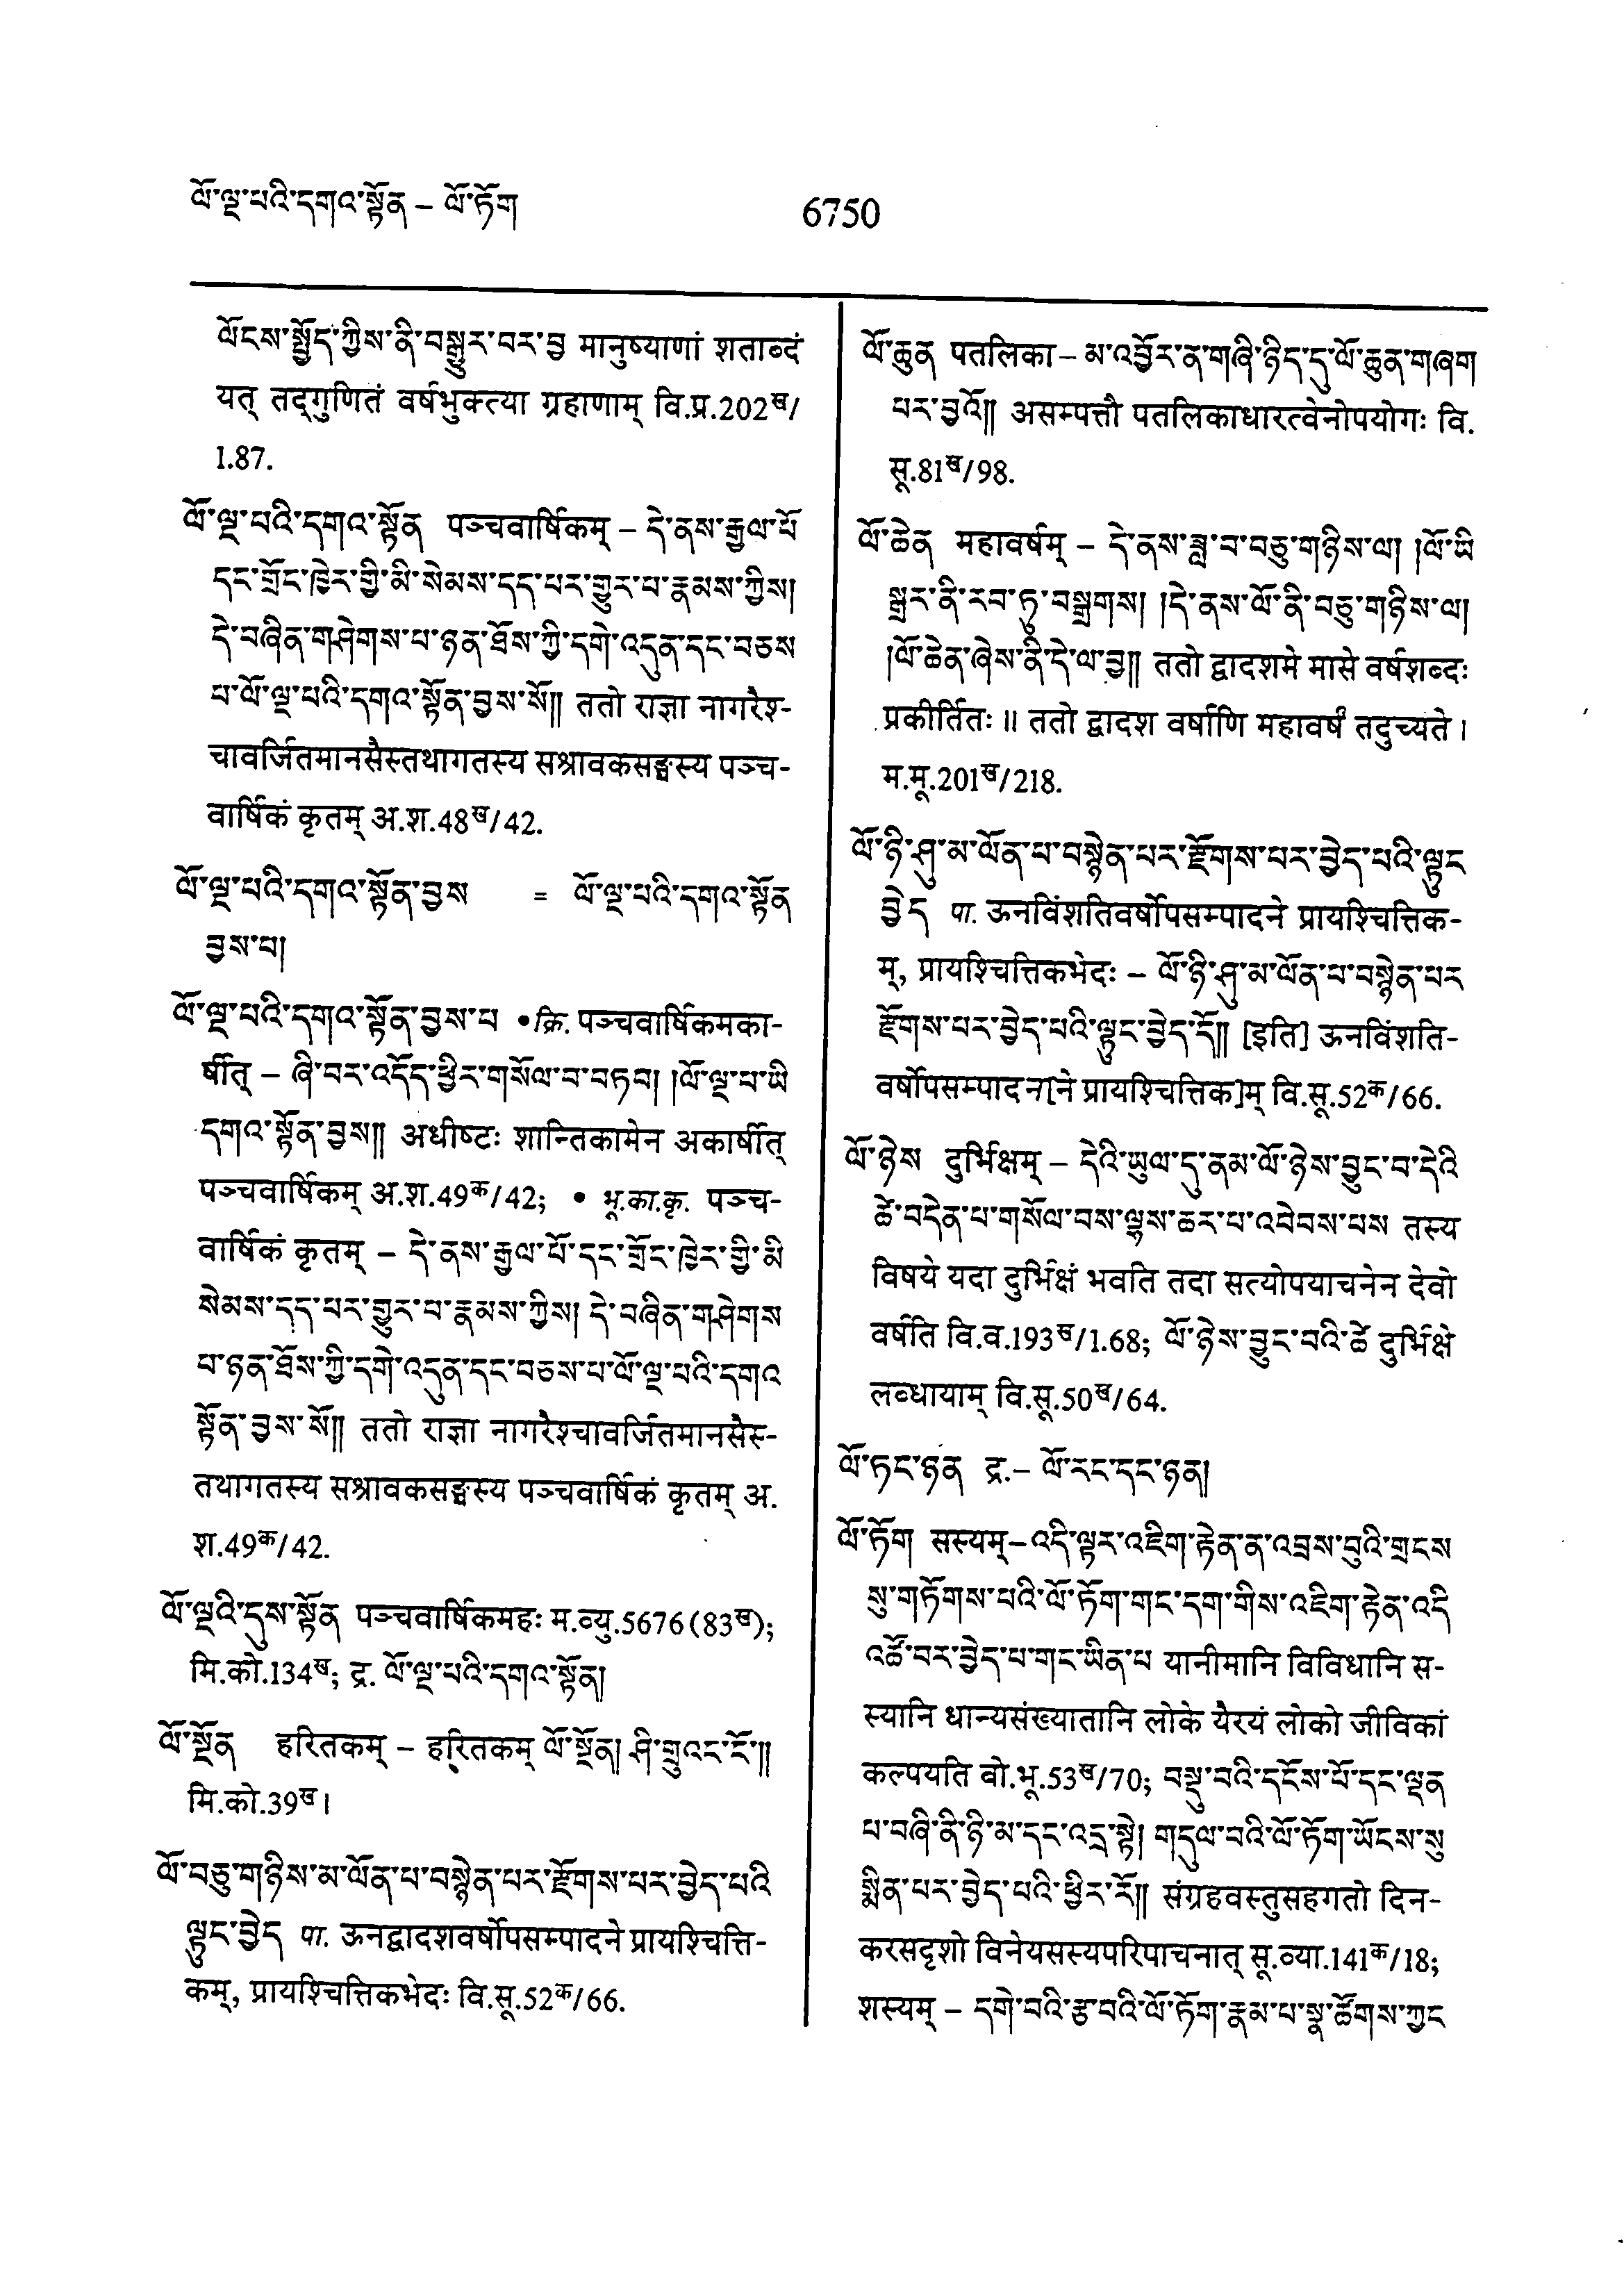 ལོ་ལྔ་པའི་དགའ་སྟོན – ལོ་ཏོག
6750
ལོངས་སྤྱོད་ཀྱིས་ནི་བསྒྱུར་བར་བྱ मानुष्याणां शताब्दं
यत् तद्‍गुणितं वर्षभुक्त्या ग्रहाणाम् वि.प्र.202ख/
1.87.
ལོ་ལྔ་པའི་དགའ་སྟོན पञ्चवार्षिकम् – དེ་ནས་རྒྱལ་པོ
དང་གྲོང་ཁྱེར་གྱི་མི་སེམས་དད་པར་གྱུར་པ་རྣམས་ཀྱིས།
དེ་བཞིན་གཤེགས་པ་ཉན་ཐོས་ཀྱི་དགེ་འདུན་དང་བཅས
པ་ལོ་ལྔ་པའི་དགའ་སྟོན་བྱས་སོ།། ततो राज्ञा नागरैश-
चावर्जितमानसैस्तथागतस्य सश्रावकसङ्घस्य पञ्च-
वार्षिकं कृतम् अ.श.48ख/42.
ལོ་ལྔ་པའི་དགའ་སྟོན་བྱས = ལོ་ལྔ་པའི་དགའ་སྟོན
བྱས་པ།
ལོ་ལྔ་པའི་དགའ་སྟོན་བྱས་པ •क्रि. पञ्चवार्षिकमका-
र्षीत् – ཞི་བར་འདོད་ཕྱིར་གསོལ་བ་བཏབ། །ལོ་ལྔ་པ་ཡི
དགའ་སྟོན་བྱས།། अधीष्टः शान्तिकामेन अकार्षीत्
पञ्चवार्षिकम् अ.श.49क/42; • भू.का.कृ. पञ्च-
वार्षिकं कृतम् – དེ་ནས་རྒྱལ་པོ་དང་གྲོང་ཁྱེར་གྱི་མི
སེམས་དད་པར་གྱུར་པ་རྣམས་ཀྱིས། དེ་བཞིན་གཤེགས
པ་ཉན་ཐོས་ཀྱི་དགེ་འདུན་དང་བཅས་པ་ལོ་ལྔ་པའི་དགའ
སྟོན་བྱས་སོ།། ततो राज्ञा नागरैश्चावर्जितमानसैस्-
तथागतस्य सश्रावकसङ्घस्य पञ्चवार्षिकं कृतम् अ.
श.49क/42.
ལོ་ལྔའི་དུས་སྟོན पञ्चवार्षिकमहः म.व्यु.5676(83ख);
मि.को.134ख; द्र. ལོ་ལྔ་པའི་དགའ་སྟོན།
ལོ་སྔོན हरितकम् – हरितकम् ལོ་སྔོན། ཤི་གྲུའང་ངོ་།།
मि.को.39ख।
ལོ་བཅུ་གཉིས་མ་ལོན་པ་བསྙེན་པར་རྫོགས་པར་བྱེད་པའི
ལྟུང་བྱེད पा. ऊनद्वादशवर्षोपसम्पादने प्रायश्चित्ति-
कम्, प्रायश्चित्तिकभेदः वि.सू.52क/66.
ལོ་ཆུན पतलिका – མ་འབྱོར་ན་གཞི་ཉིད་དུ་ལོ་ཆུན་གཞག
པར་བྱའོ།། असम्पत्तौ पतलिकाधारत्वेनोपयोगः वि.
सू.81ख/98.
ལོ་ཆེན महावर्षम् – དེ་ནས་ཟླ་བ་བཅུ་གཉིས་ལ། །ལོ་ཡི
སྒྲར་ནི་རབ་ཏུ་བསྒྲགས། །དེ་ནས་ལོ་ནི་བཅུ་གཉིས་ལ།
།ལོ་ཆེན་ཞེས་ནི་དེ་ལ་བྱ།། ततो द्वादशमे मासे वर्षशब्दः
प्रकीर्तितः॥ ततो द्वादश वर्षाणि महावर्षं तदुच्यते।
म.मू.201ख/218.
ལོ་ཉི་ཤུ་མ་ལོན་པ་བསྙེན་པར་རྫོགས་པར་བྱེད་པའི་ལྟུང
བྱེད पा. ऊनविंशतिवर्षोपसम्पादने प्रायश्चित्तिक-
म्, प्रायश्चित्तिकभेदः – ལོ་ཉི་ཤུ་མ་ལོན་པ་བསྙེན་པར
རྫོགས་པར་བྱེད་པའི་ལྟུང་བྱེད་དོ།། [इति] ऊनविंशति-
वर्षोपसम्पादन[ने प्रायश्चित्तिक]म् वि.सू.52क/66.
ལོ་ཉེས दुर्भिक्षम् – དེའི་ཡུལ་དུ་ནམ་ལོ་ཉེས་བྱུང་བ་དེའི
ཚེ་བདེན་པ་གསོལ་བས་ལྷས་ཆར་པ་འབེབས་པས तस्य
विषये यदा दुर्भिक्षं भवति तदा सत्योपयाचनेन देवो
वर्षति वि.व.193ख/1.68; ལོ་ཉེས་བྱུང་བའི་ཚེ दुर्भिक्षे
लब्धायाम् वि.सू.50ख/64.
ལོ་ཏང་ཉན द्र.– ལོ་རང་དང་ཉན།
ལོ་ཏོག सस्यम्–འདི་ལྟར་འཇིག་རྟེན་ན་འབྲས་བུའི་གྲངས
སུ་གཏོགས་པའི་ལོ་ཏོག་གང་དག་གིས་འཇིག་རྟེན་འདི
འཚོ་བར་བྱེད་པ་གང་ཡིན་པ यानीमानि विविधानि स-
स्यानि धान्यसंख्यातानि लोके यैरयं लोको जीविकां
कल्पयति बो.भू.53ख/70; བསྡུ་བའི་དངོས་པོ་དང་ལྡན
པ་བཞི་ནི་ཉི་མ་དང་འདྲ་སྟེ། གདུལ་བའི་ལོ་ཏོག་ཡོངས་སུ
སྨིན་པར་བྱེད་པའི་ཕྱིར་རོ།། संग्रहवस्तुसहगतो दिन-
करसदृशो विनेयसस्यपरिपाचनात् सू.व्या.141क/18;
शस्यम् – དགེ་བའི་རྩ་བའི་ལོ་ཏོག་རྣམ་པ་སྣ་ཚོགས་ཀྱང